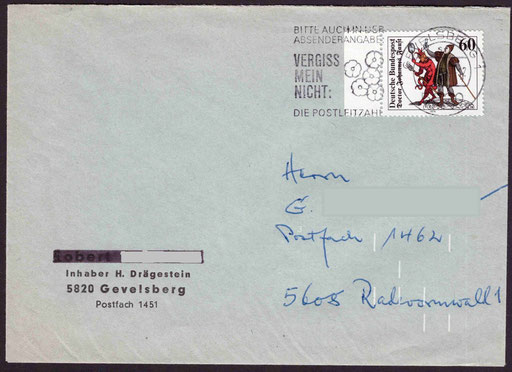 BITTE AUCH IN DER
ABSENDERANGABE
VERGISS
MEIN
NICHT:
DIE POSTLEITZAHL
60
Deutsche Bundespost
Doctor Johannes Faust
Herrn
G.
Postfach 1462
5608 Radevormwald 1
Robert
Inhaber H. Drägestein
5820 Gevelsberg
Postfach 1451